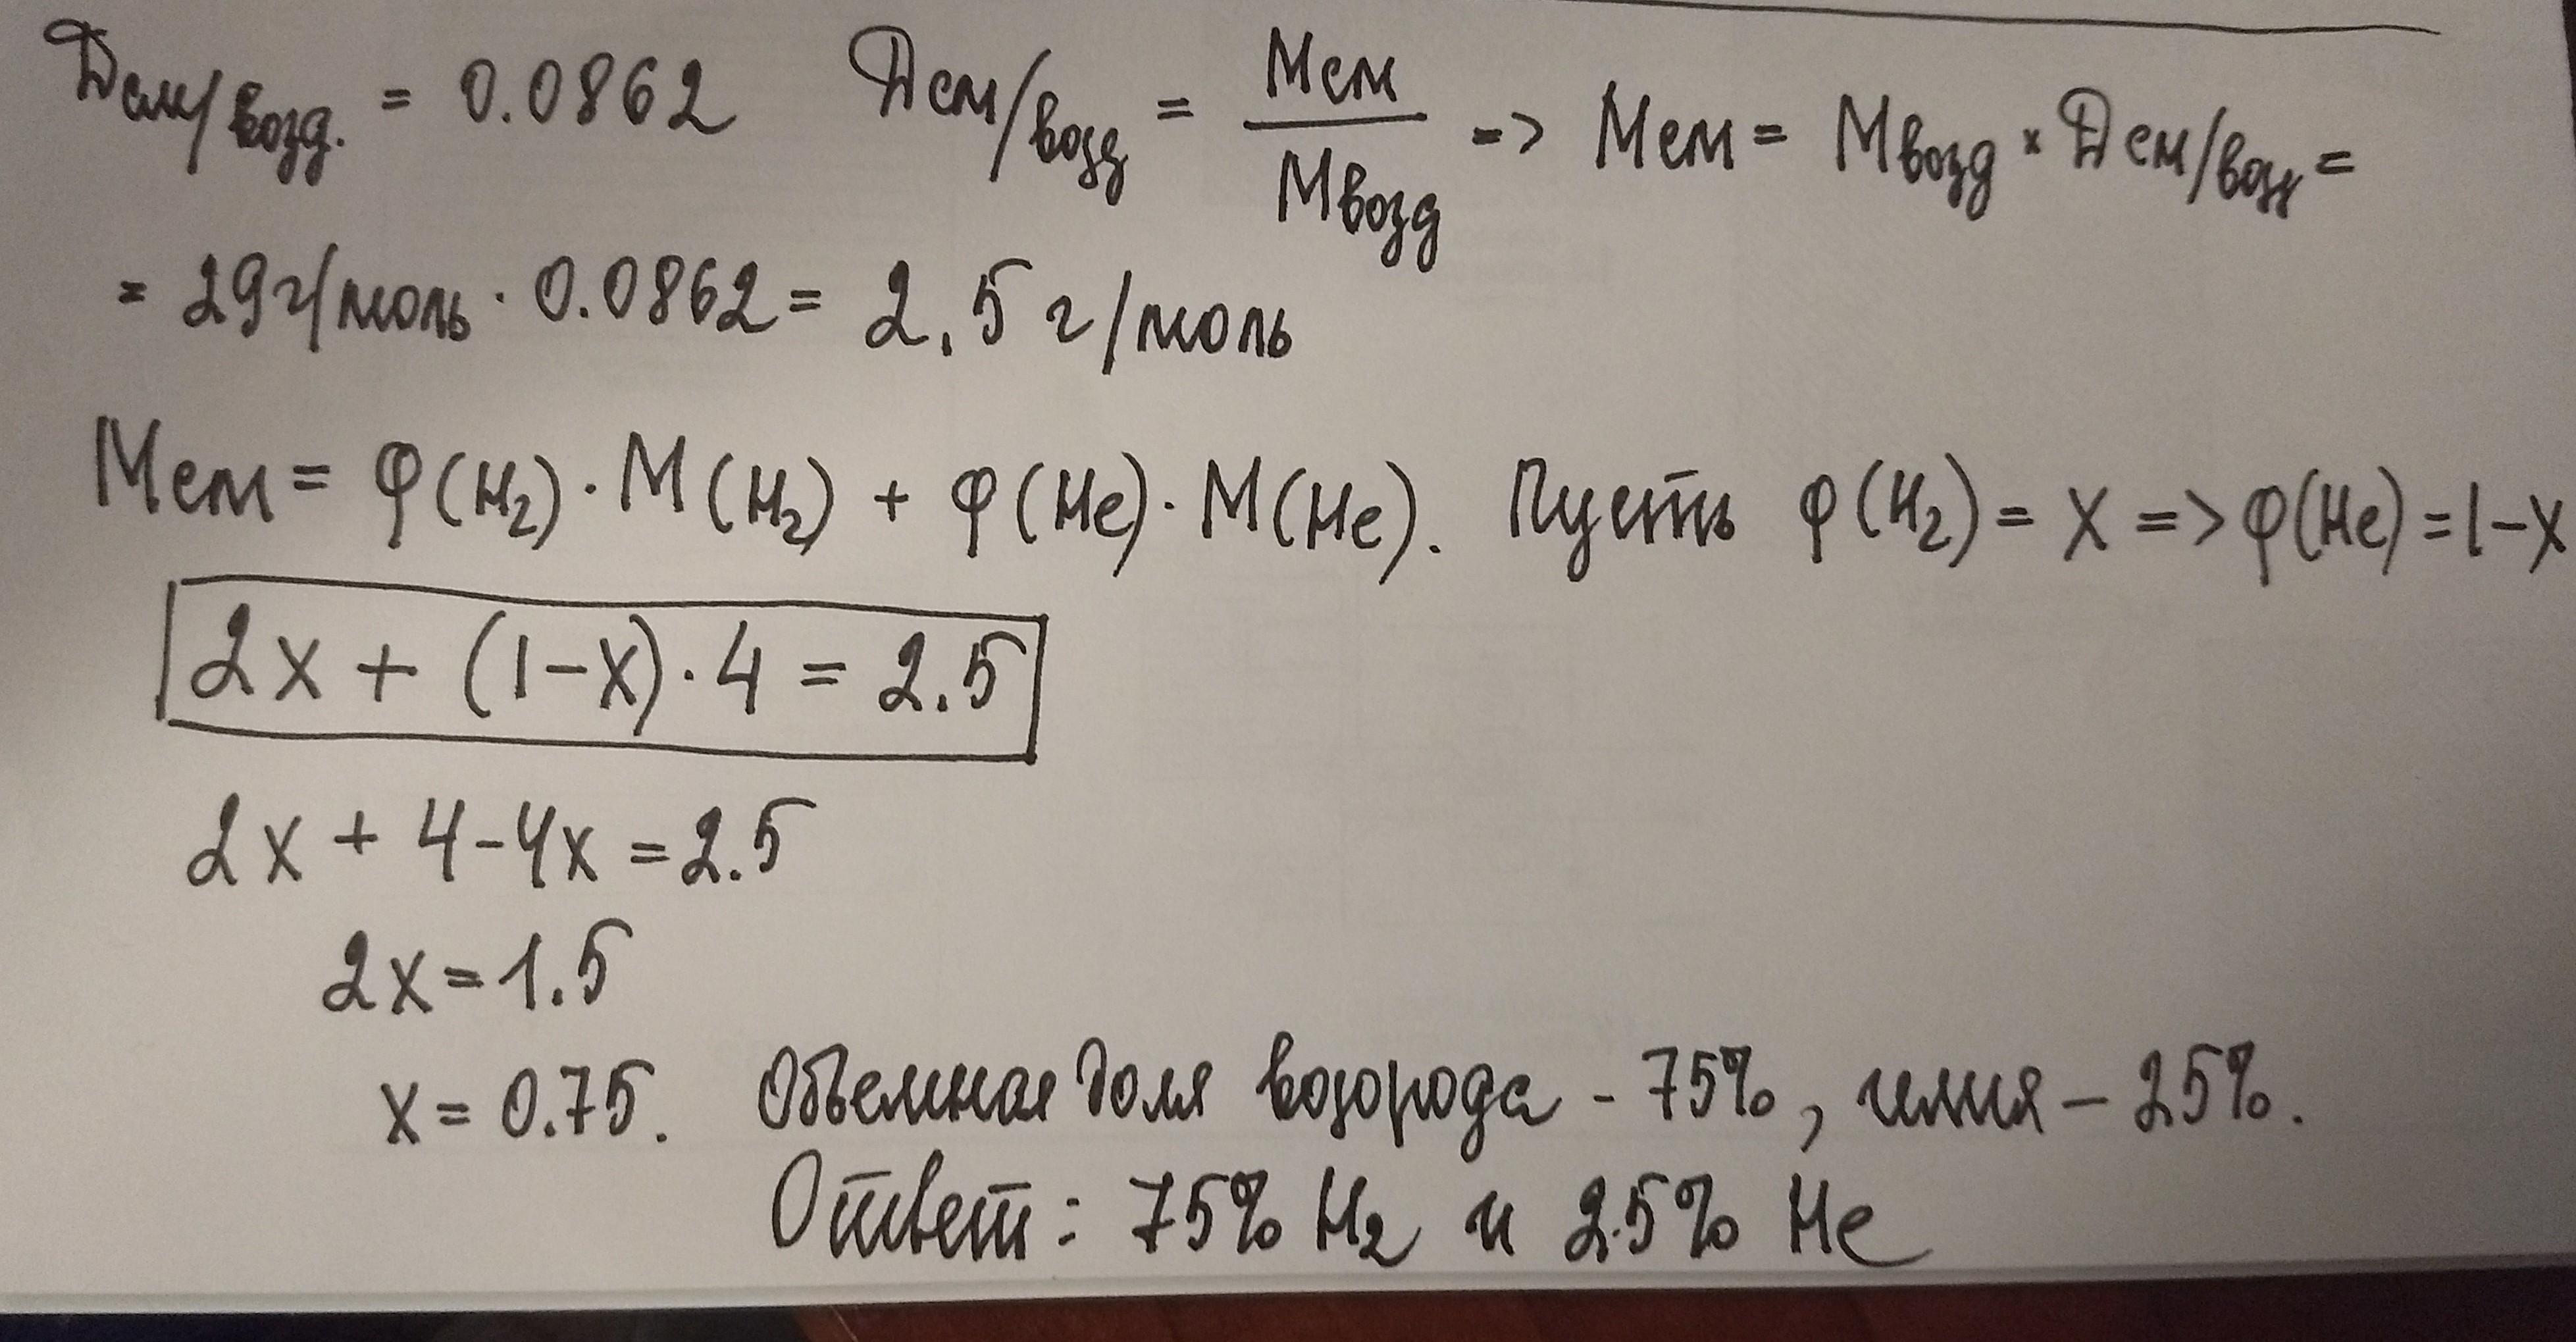 Dсм/возд. = 0.0862 Dсм/возд = Mсм/Mвозд => Mсм = Mвозд × Dсм/возд =
= 29 г/моль · 0.0862 = 2.5 г/моль
Mсм = φ(H₂) · M(H₂) + φ(He) · M(He). Пусть φ(H₂) = x => φ(He) = 1-x
2x + (1-x) · 4 = 2.5
2x + 4-4x = 2.5
2x = 1.5
x = 0.75. Объемная доля водорода - 75%, гелия - 25%.
Ответ: 75% H₂ и 25% He